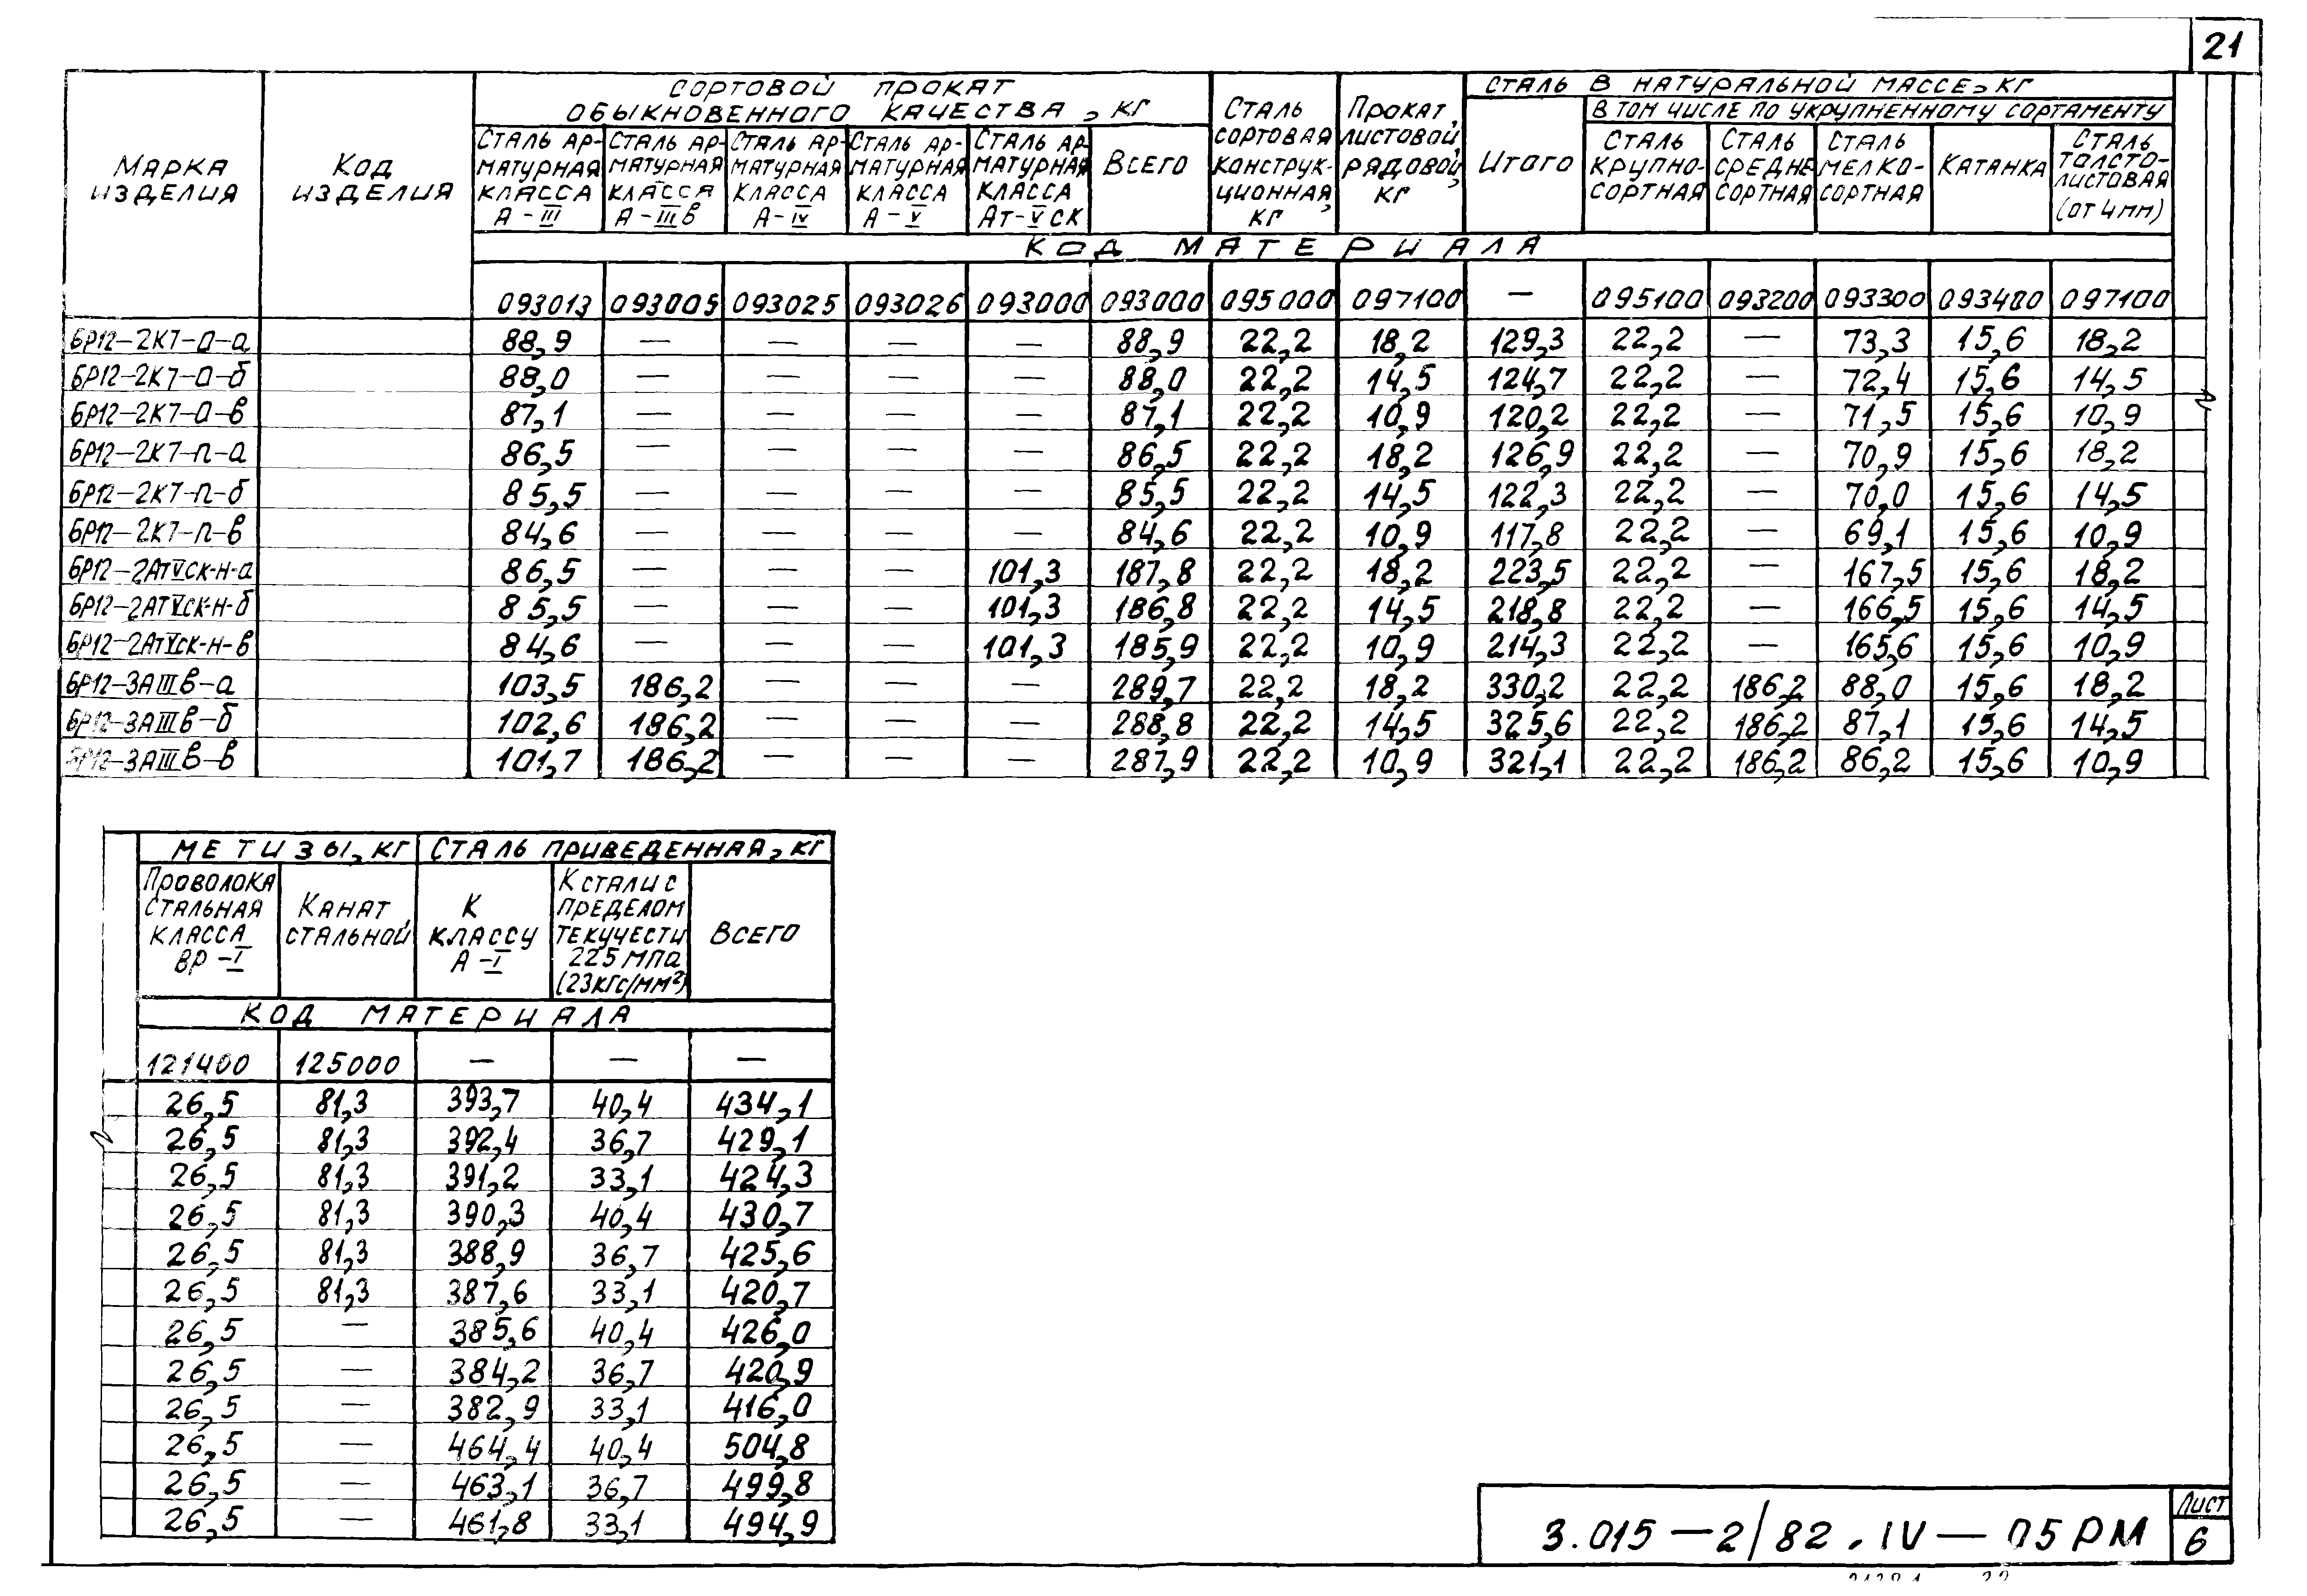 21
МАРКА ИЗДЕЛИЯ
КОД ИЗДЕЛИЯ
СОРТОВОЙ ПРОКАТ ОБЫКНОВЕННОГО КАЧЕСТВА, КГ
СТАЛЬ АРМАТУРНАЯ КЛАССА А-III
СТАЛЬ АРМАТУРНАЯ КЛАССА А-IIIВ
СТАЛЬ АРМАТУРНАЯ КЛАССА А-IV
СТАЛЬ АРМАТУРНАЯ КЛАССА А-V
СТАЛЬ АРМАТУРНАЯ КЛАССА АТ-VСК
ВСЕГО
СТАЛЬ СОРТОВАЯ КОНСТРУКЦИОННАЯ, КГ
ПРОКАТ ЛИСТОВОЙ РЯДОВОЙ, КГ
СТАЛЬ В НАТУРАЛЬНОЙ МАССЕ, КГ
ИТОГО
В ТОМ ЧИСЛЕ ПО УКРУПНЕННОМУ СОРТАМЕНТУ
СТАЛЬ КРУПНОСОРТНАЯ
СТАЛЬ СРЕДНЕСОРТНАЯ
СТАЛЬ МЕЛКОСОРТНАЯ
КАТАНКА
СТАЛЬ ТОЛСТОЛИСТОВАЯ (ОТ 4 ММ)
КОД МАТЕРИАЛА
093013 093005 093025 093026 093000 093000 095000 097100 — 095100 093200 093300 093400 097100
БР12-2К7-О-а 88,9 — — — — 88,9 22,2 18,2 129,3 22,2 — 73,3 15,6 18,2
БР12-2К7-О-б 88,0 — — — — 88,0 22,2 14,5 124,7 22,2 — 72,4 15,6 14,5
БР12-2К7-О-в 87,1 — — — — 87,1 22,2 10,9 120,2 22,2 — 71,5 15,6 10,9
БР12-2К7-П-а 86,5 — — — — 86,5 22,2 18,2 126,9 22,2 — 70,9 15,6 18,2
БР12-2К7-П-б 85,5 — — — — 85,5 22,2 14,5 122,3 22,2 — 70,0 15,6 14,5
БР12-2К7-П-в 84,6 — — — — 84,6 22,2 10,9 117,8 22,2 — 69,1 15,6 10,9
БР12-2АТVСК-Н-а 86,5 — — — 101,3 187,8 22,2 18,2 223,5 22,2 — 167,5 15,6 18,2
БР12-2АТVСК-Н-б 85,5 — — — 101,3 186,8 22,2 14,5 218,8 22,2 — 166,5 15,6 14,5
БР12-2АТVСК-Н-в 84,6 — — — 101,3 185,9 22,2 10,9 214,3 22,2 — 165,6 15,6 10,9
БР12-3АIIIВ-а 103,5 186,2 — — — 289,7 22,2 18,2 330,2 22,2 186,2 88,0 15,6 18,2
БР12-3АIIIВ-б 102,6 186,2 — — — 288,8 22,2 14,5 325,6 22,2 186,2 87,1 15,6 14,5
БР12-3АIIIВ-в 101,7 186,2 — — — 287,9 22,2 10,9 321,1 22,2 186,2 86,2 15,6 10,9
МЕТИЗЫ, КГ СТАЛЬ ПРИВЕДЕННАЯ, КГ
ПРОВОЛОКА СТАЛЬНАЯ КЛАССА ВР-I
КАНАТ СТАЛЬНОЙ
К КЛАССУ А-I
К СТАЛИ С ПРЕДЕЛОМ ТЕКУЧЕСТИ 225 МПа (23 КГС/ММ²)
ВСЕГО
КОД МАТЕРИАЛА
121400 125000 — — —
26,5 81,3 393,7 40,4 434,1
26,5 81,3 392,4 36,7 429,1
26,5 81,3 391,2 33,1 424,3
26,5 81,3 390,3 40,4 430,7
26,5 81,3 388,9 36,7 425,6
26,5 81,3 387,6 33,1 420,7
26,5 — 385,6 40,4 426,0
26,5 — 384,2 36,7 420,9
26,5 — 382,9 33,1 416,0
26,5 — 464,4 40,4 504,8
26,5 — 463,1 36,7 499,8
26,5 — 461,8 33,1 494,9
3.015-2/82.IV-05РМ
ЛИСТ
6